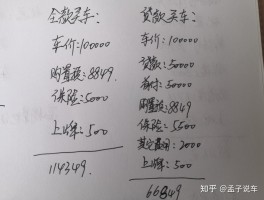 全款买车:
车价:100000
购置税:8849
保险:5000
上牌:500
114349.
贷款买车:
车价:100000
贷款:50000
首付:50000
购置税:8849
保险:5500
其它费用:2000
上牌:500
66849
知乎 @孟子说车